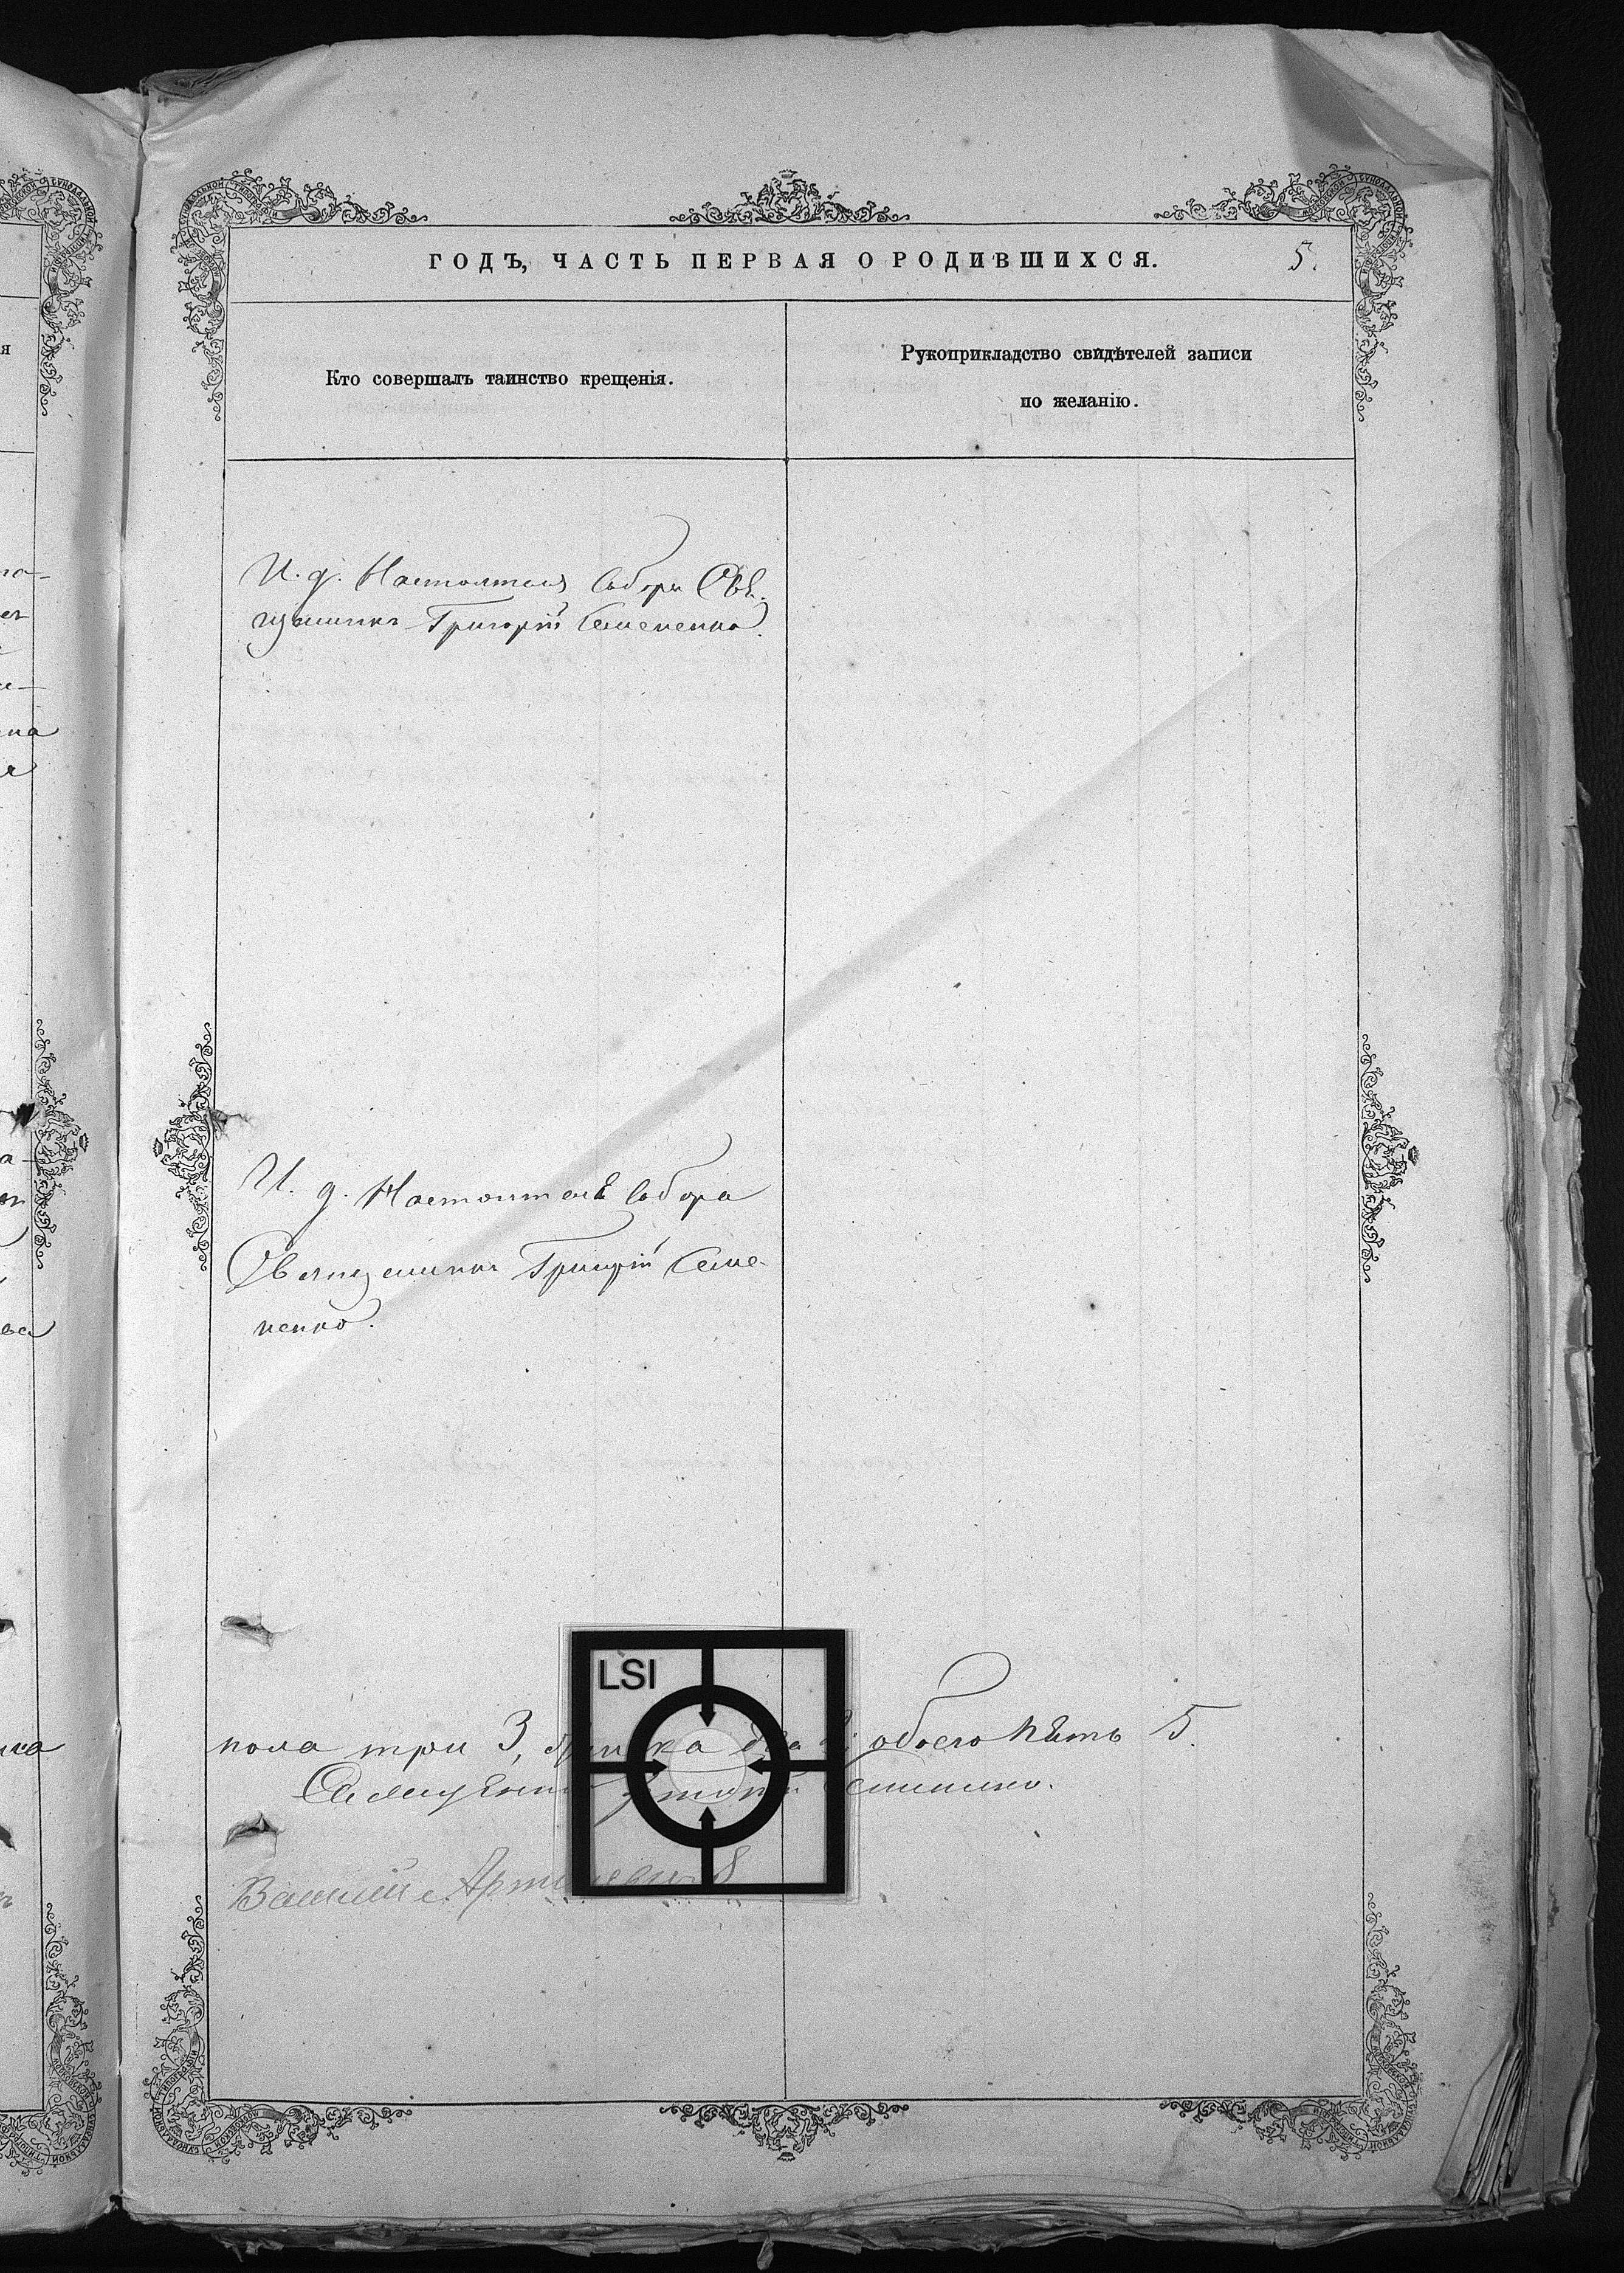 ГОДЪ, ЧАСТЬ ПЕРВАЯ О РОДИВШИХСЯ.
5.
Кто совершалъ таинство крещенія.
Рукоприкладство свидѣтелей записи
по желанію.
И. д. Настоятеля Собора Свя-
щенникъ Григорій Семененко.
И. д. Настоятель Собора
Священникъ Григорій Семе-
ненко.
LSI
пола три 3, два обоего пять 5.